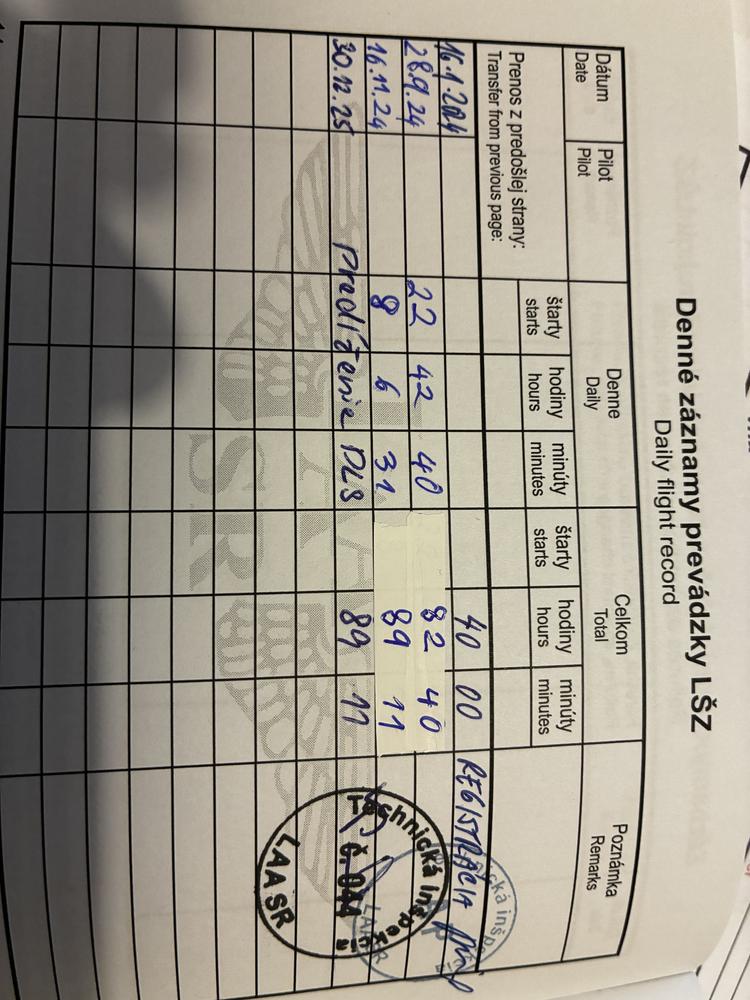 Denné záznamy prevádzky LŠZ
Daily flight record
Dátum Pilot Denne Celkom Poznámka
Date Pilot Daily Total Remarks
štarty hodiny minúty štarty hodiny minúty
starts hours minutes starts hours minutes
Prenos z predošlej strany:
Transfer from previous page:
40 00 REGISTRÁCIA
28.9.24 22 42 40 82 40
16.11.24 8 6 31 89 11
30.12.25 Predlženie PLS 89 11
Technická inšpekcia
č. 044
LAA SR
SR